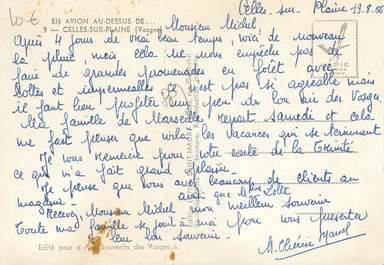 Celles-sur-Plaine 19.8.66
10 €
EN AVION AU-DESSUS DE...
9 — CELLES-SUR-PLAINE (Vosges)
Monsieur Michel,
Après 4 jours de vrai beau temps, voici de nouveau
la pluie, mais cela ne nous empêche pas de
faire de grandes promenades en forêt avec
bottes et imperméables. Ce n'est pas si agréable mais
il faut bien profiter un peu du bon air des Vosges.
Ma famille de Marseille repart samedi et cela
me fait penser que voilà les vacances qui se terminent
Je vous remercie pour votre carte de la Trinité
ce qui m'a fait grand plaisir.
Je pense que vous avez beaucoup de clients au
magasin. ainsi que Mme Lotte
Recevez, Monsieur Michel mon meilleur souvenir
Toute ma famille se joint à moi pour vous présenter
leur bon souvenir.
Edité pour « Aux Souvenirs des Vosges »